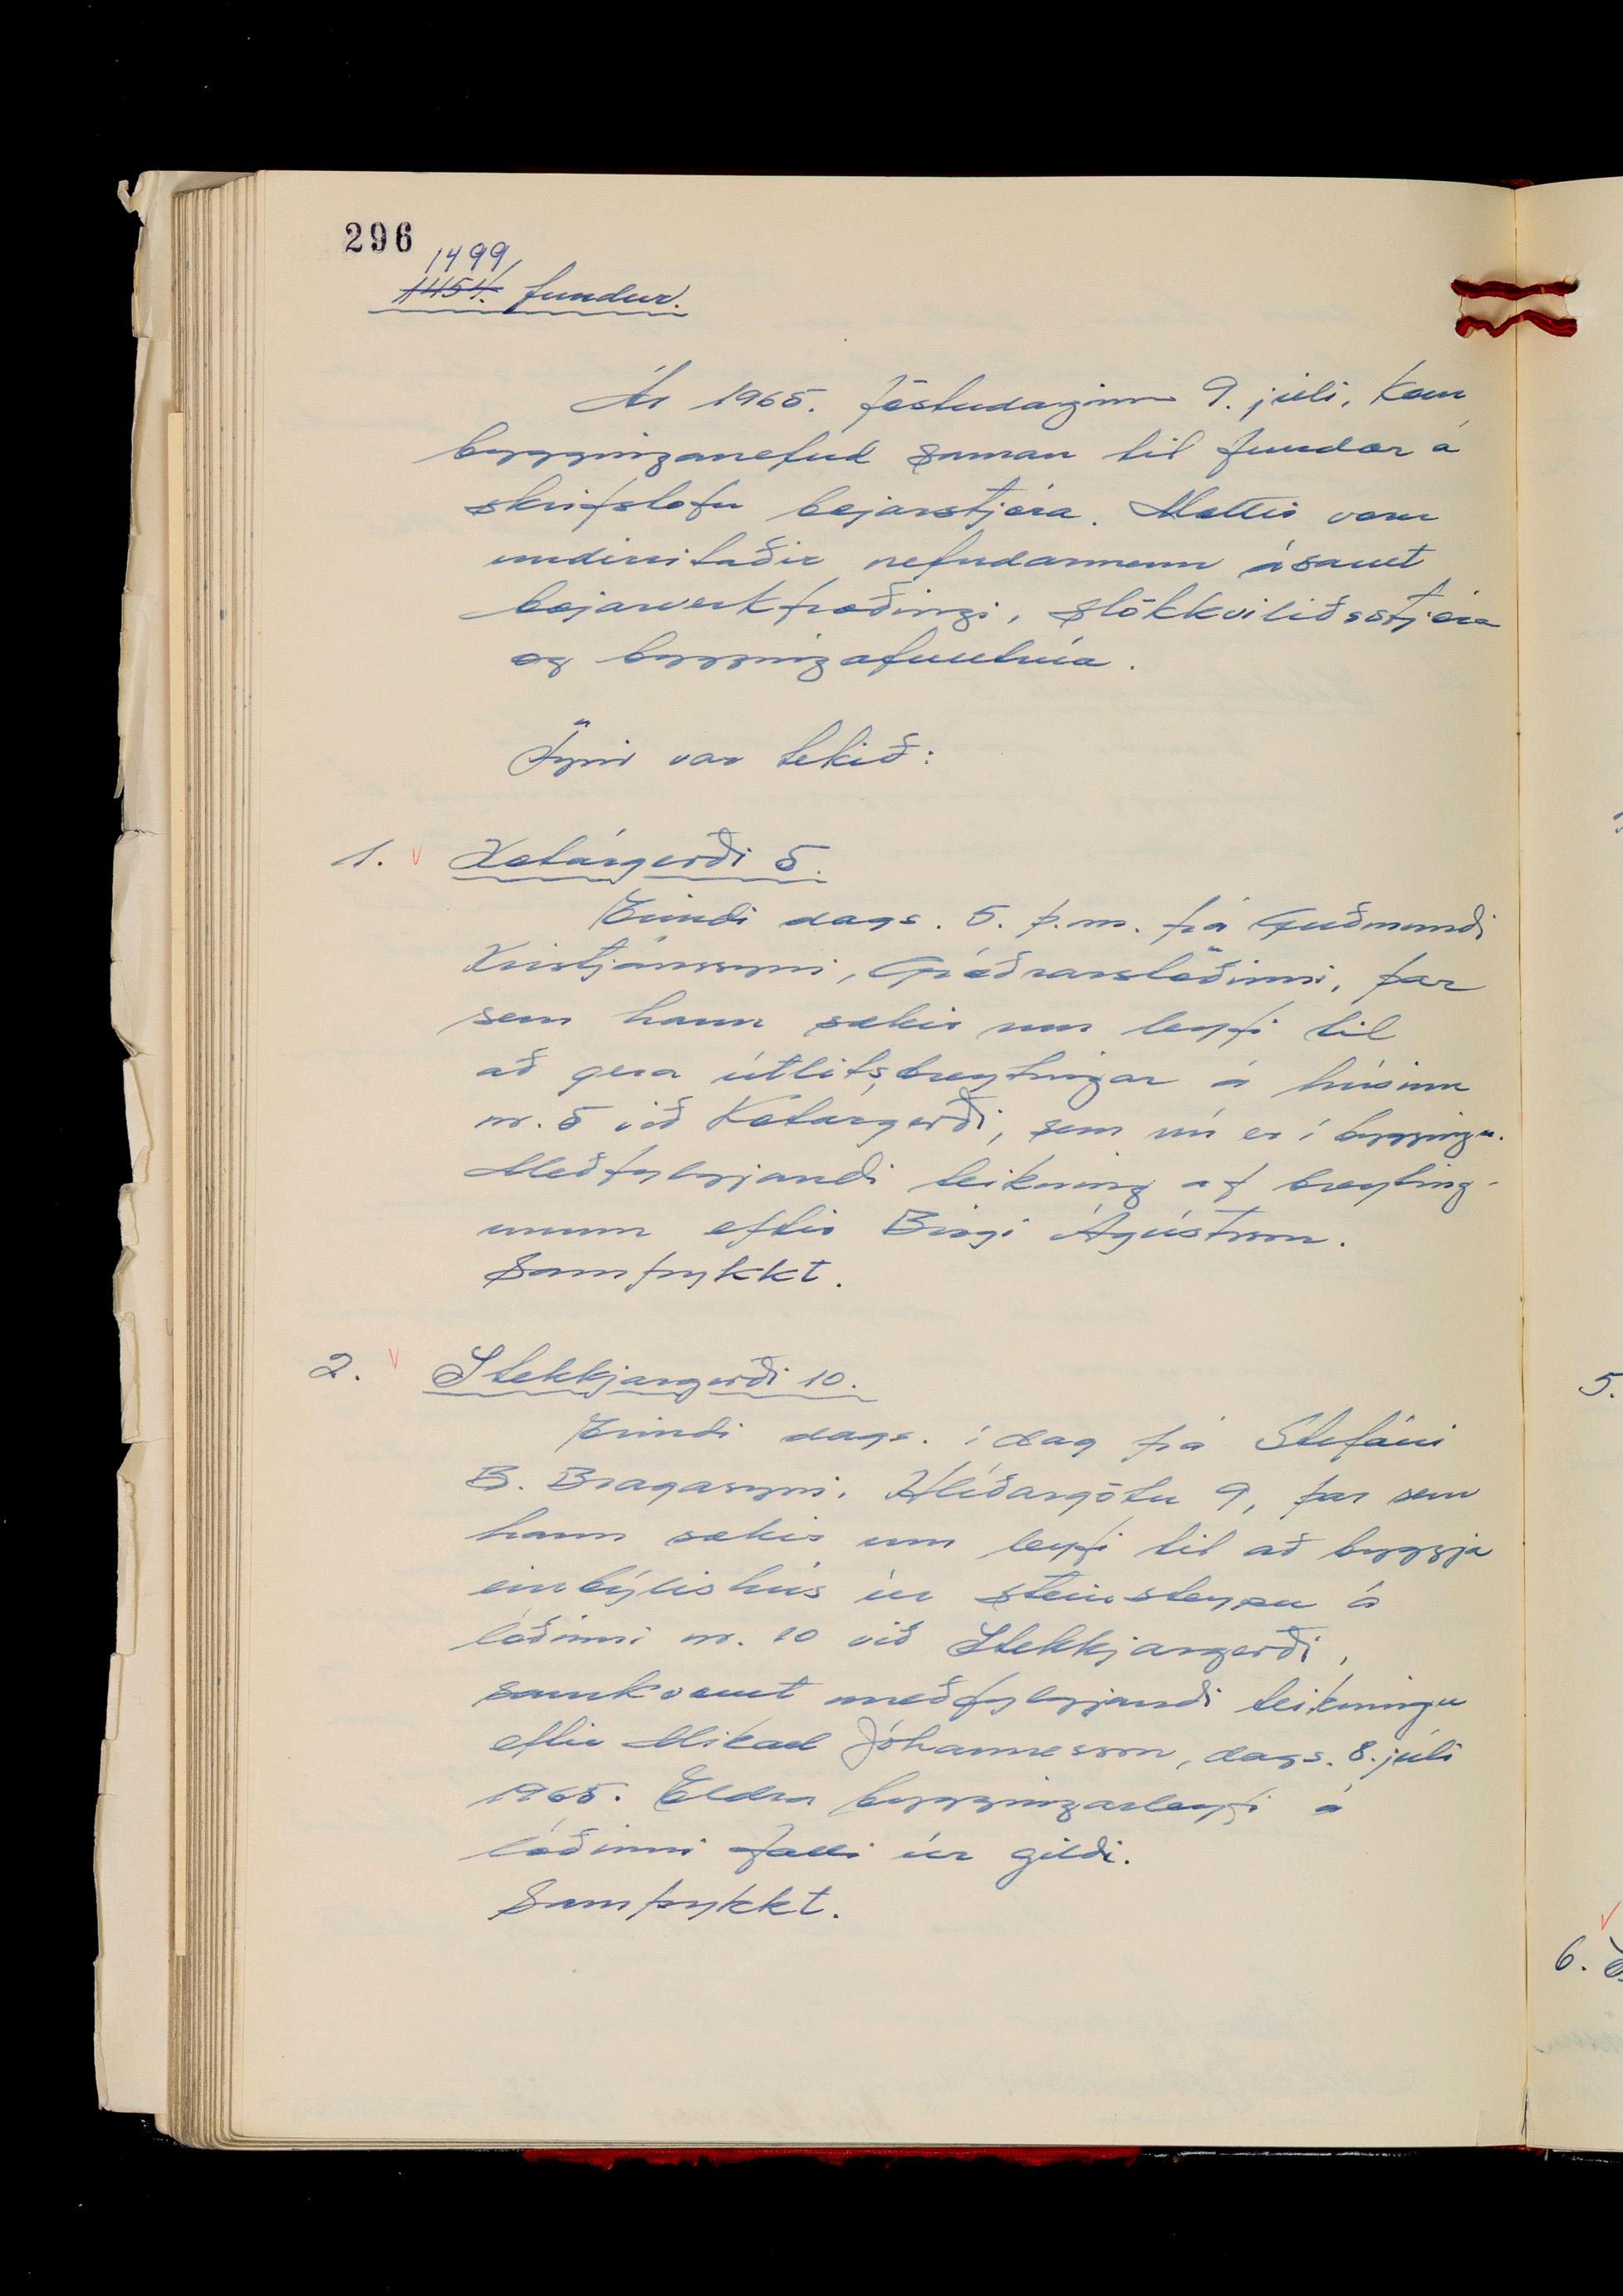 296
1499.
1454. fundur.
Ár 1965. föstudaginn 9. júlí, kom
bygginganefnd saman til fundar á
skrifstofu bæjarstjóra. Mættir voru
undirritaðir nefndarmenn ásamt
bæjarverkfræðingi, slökkviliðsstjóra
og byggingafulltrúa.
Fyrir var tekið:
1. Kotárgerði 5.
Erindi dags. 5. þ.m. frá Guðmundi
Kristjánssyni, Gróðrarstöðinni, þar
sem hann sækir um leyfi til
að gera útlitsbreytingar á húsinu
nr. 5 við Kotárgerði, sem nú er í byggingu.
Meðfylgjandi teikning af breyting-
unum eftir Birgi Ágústsson.
Samþykkt.
2. Stekkjargerði 10.
Erindi dags. í dag frá Stefáni
B. Bragasyni, Hlíðargötu 9, þar sem
hann sækir um leyfi til að byggja
einbýlishús úr steinsteypu á
lóðinni nr. 10 við Stekkjargerði,
samkvæmt meðfylgjandi teikningu
eftir Mikael Jóhannesson, dags. 8. júlí
1965. Eldra byggingarleyfi á
lóðinni falli úr gildi.
Samþykkt.
5.
6.